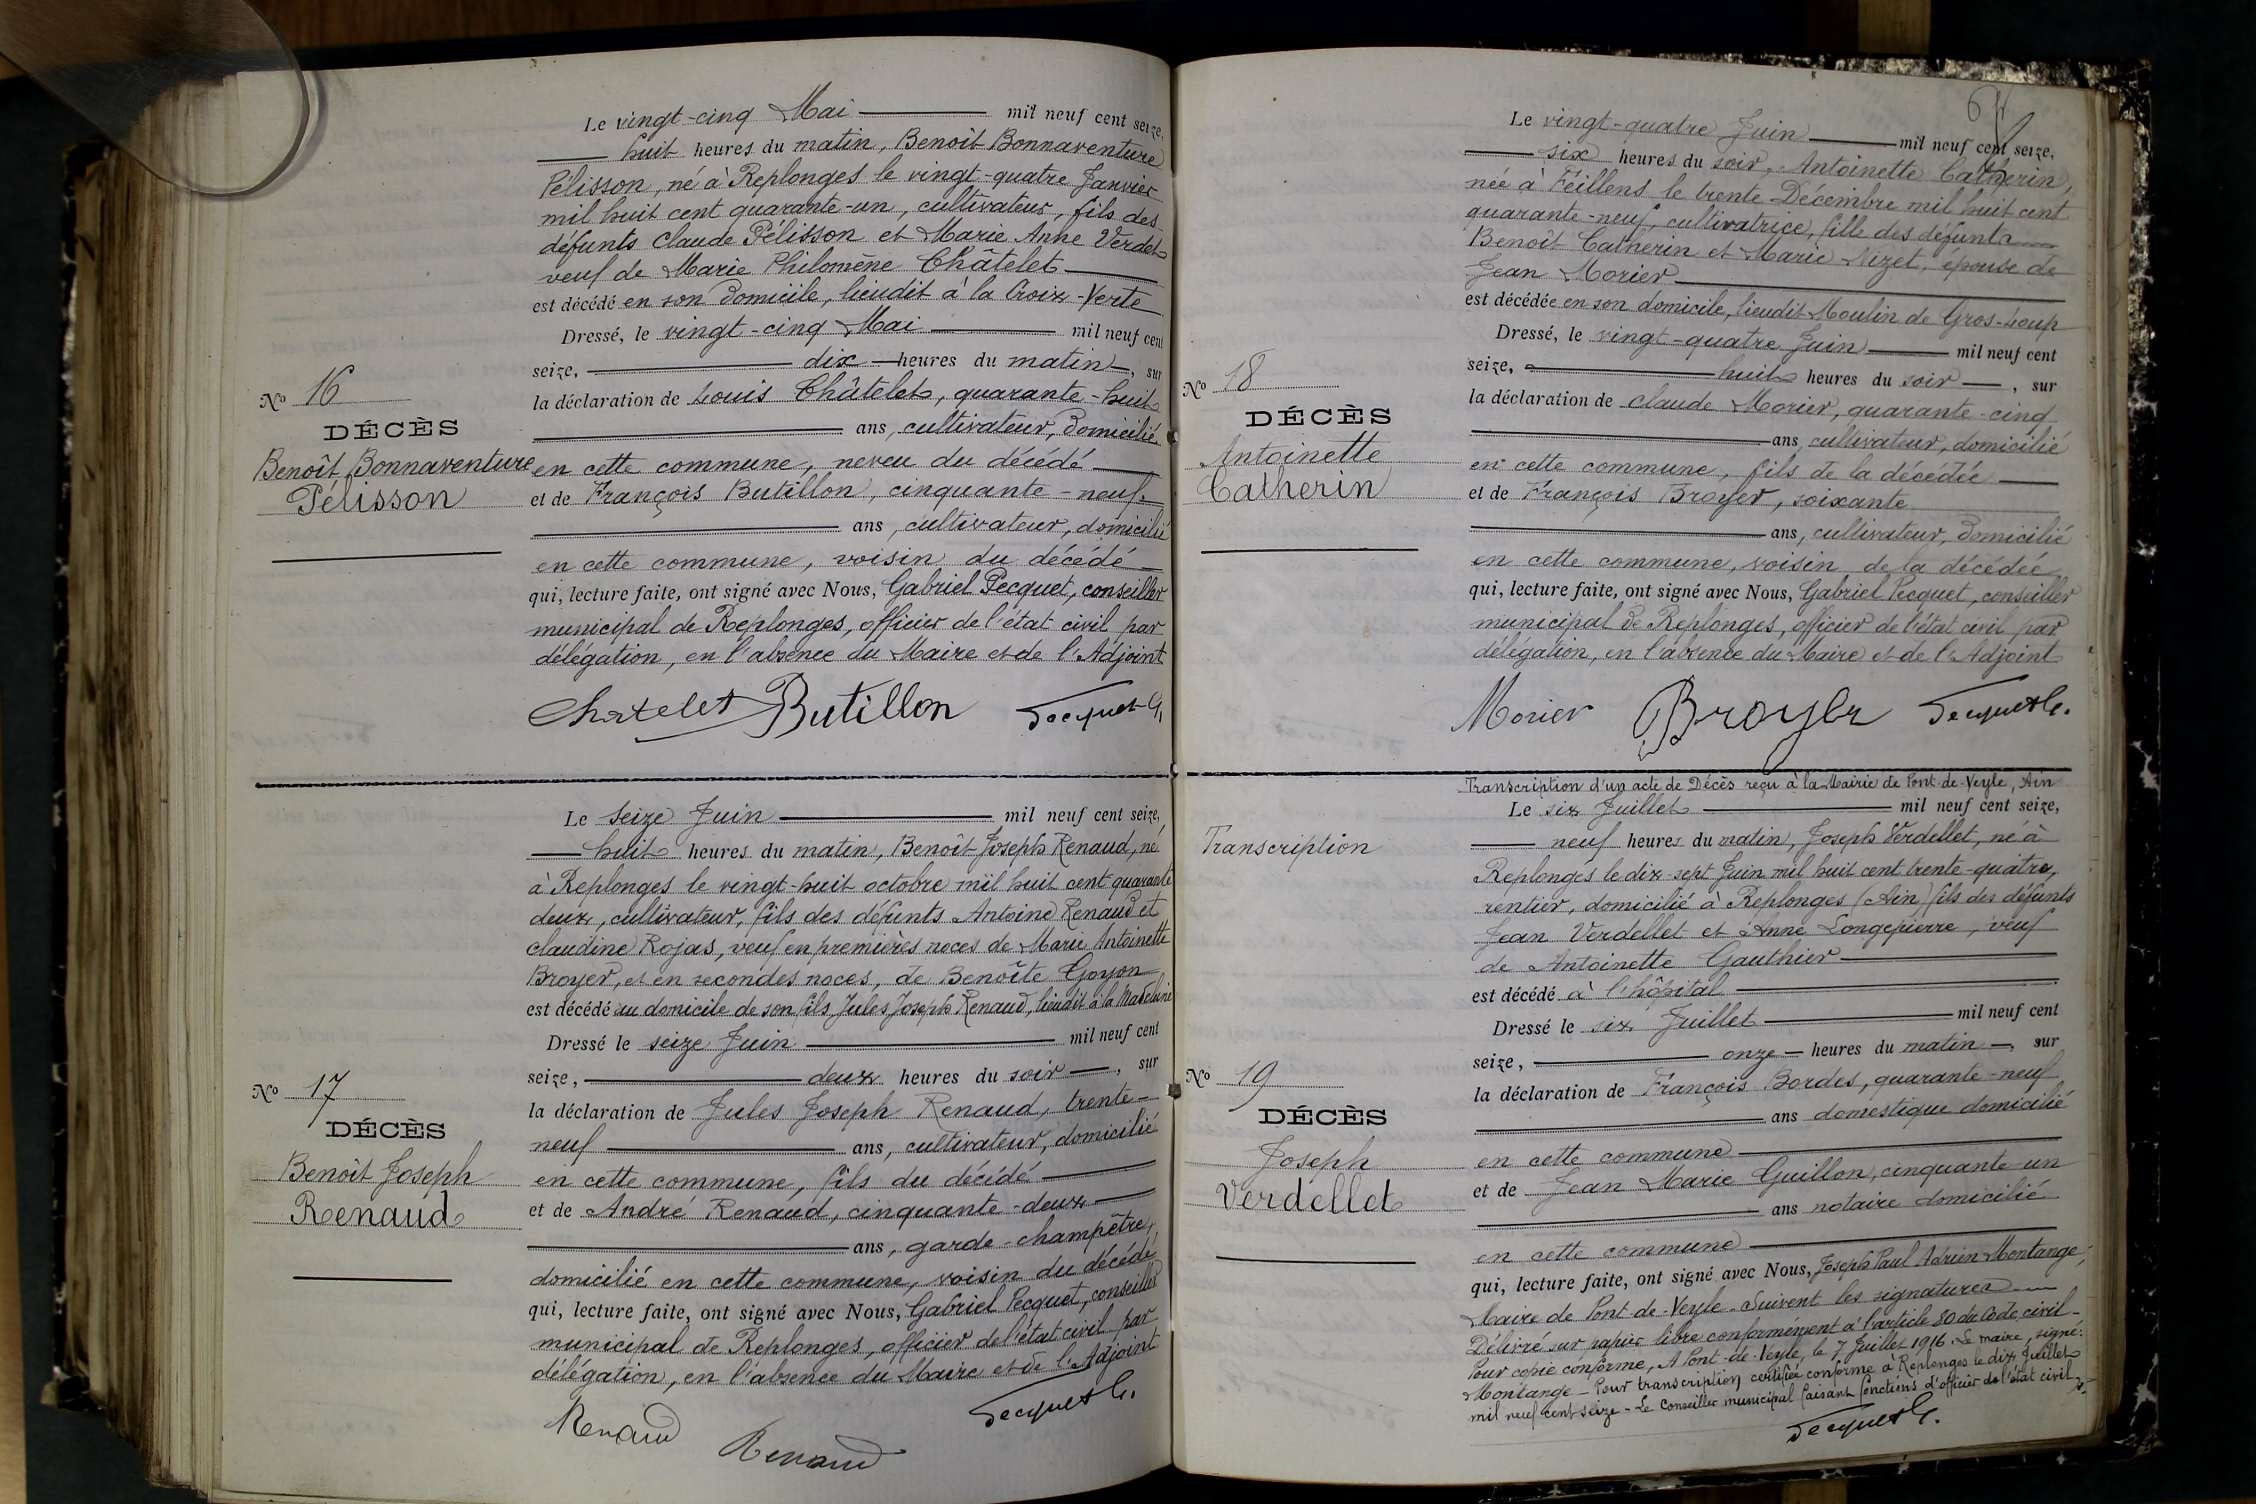 Le vingt-cinq Mai mil neuf cent seize,
huit heures du matin, Benoît Bonnaventure
Pélisson, né à Replonges le vingt-quatre Janvier
mil huit cent quarante-un, cultivateur, fils des
défunts Claude Pélisson et Marie Anne Verdet
veuf de Marie Philomène Châtelet
est décédé en son domicile, lieudit à la Croix-Verte
Dressé, le vingt-cinq Mai mil neuf cent
seize, dix heures du matin, sur
la déclaration de Louis Châtelet, quarante-huit
ans, cultivateur, domicilié
en cette commune, neveu du décédé
et de François Butillon, cinquante-neuf
ans, cultivateur, domicilié
en cette commune, voisin du décédé
qui, lecture faite, ont signé avec Nous, Gabriel Pecquet, conseiller
municipal de Replonges, officier de l'état civil par
délégation, en l'absence du Maire et de l'Adjoint
Chatelet Butillon Pecquet G.
No 16
DÉCÈS
Benoît Bonnaventure
Pélisson
Le seize Juin mil neuf cent seize,
huit heures du matin, Benoît Joseph Renaud, né
à Replonges le vingt-huit octobre mil huit cent quarante
deux, cultivateur, fils des défunts Antoine Renaud et
Claudine Rojas, veuf en premières noces de Marie Antoinette
Broyer, et en secondes noces, de Benoîte Goyon
est décédé au domicile de son fils, Jules Joseph Renaud, lieudit à la Madeleine
Dressé le seize Juin mil neuf cent
seize, deux heures du soir, sur
la déclaration de Jules Joseph Renaud, trente-
neuf ans, cultivateur, domicilié
en cette commune, fils du décédé
et de André Renaud, cinquante-deux
ans, garde-champêtre,
domicilié en cette commune, voisin du décédé
qui, lecture faite, ont signé avec Nous, Gabriel Pecquet, conseiller
municipal de Replonges, officier de l'état civil par
délégation, en l'absence du Maire et de l'Adjoint
Renaud Renaud Pecquet G.
No 17
DÉCÈS
Benoît Joseph
Renaud
Le vingt-quatre Juin mil neuf cent seize,
six heures du soir, Antoinette Catherin,
née à Feillens le trente Décembre mil huit cent
quarante-neuf, cultivatrice, fille des défunts
Benoît Catherin et Marie Nizet, épouse de
Jean Morier
est décédée en son domicile, lieudit Moulin de Gros-Loup
Dressé, le vingt-quatre Juin mil neuf cent
seize, huit heures du soir, sur
la déclaration de Claude Morier, quarante-cinq
ans, cultivateur, domicilié
en cette commune, fils de la décédée
et de François Broyer, soixante
ans, cultivateur, domicilié
en cette commune, voisin de la décédée
qui, lecture faite, ont signé avec Nous, Gabriel Pecquet, conseiller
municipal de Replonges, officier de l'état civil par
délégation, en l'absence du Maire et de l'Adjoint
Morier Broyer Pecquet G.
No 18
DÉCÈS
Antoinette
Catherin
Transcription d'un acte de Décès reçu à la Mairie de Pont-de-Veyle, Ain
Le six Juillet mil neuf cent seize,
neuf heures du matin, Joseph Verdellet, né à
Replonges le dix-sept Juin mil huit cent trente-quatre,
rentier, domicilié à Replonges (Ain) fils des défunts
Jean Verdellet et Anne Longepierre, veuf
de Antoinette Gauthier
est décédé à l'hôpital
Dressé le six Juillet mil neuf cent
seize, onze heures du matin, sur
la déclaration de François Bordes, quarante-neuf
ans domestique domicilié
en cette commune
et de Jean Marie Guillon, cinquante-un
ans notaire domicilié
en cette commune
qui, lecture faite, ont signé avec Nous, Joseph Paul Adrien Montange,
Maire de Pont-de-Veyle. Suivent les signatures
Délivré sur papier libre conformément à l'article 80 du Code civil -
Pour copie conforme, A Pont-de-Veyle, le 7 Juillet 1916. Le maire, signé:
Montange - Pour transcription certifiée conforme à Replonges le dix Juillet
mil neuf cent seize - Le Conseiller municipal faisant fonctions d'officier de l'état civil
Pecquet G.
Transcription
No 19
DÉCÈS
Joseph
Verdellet